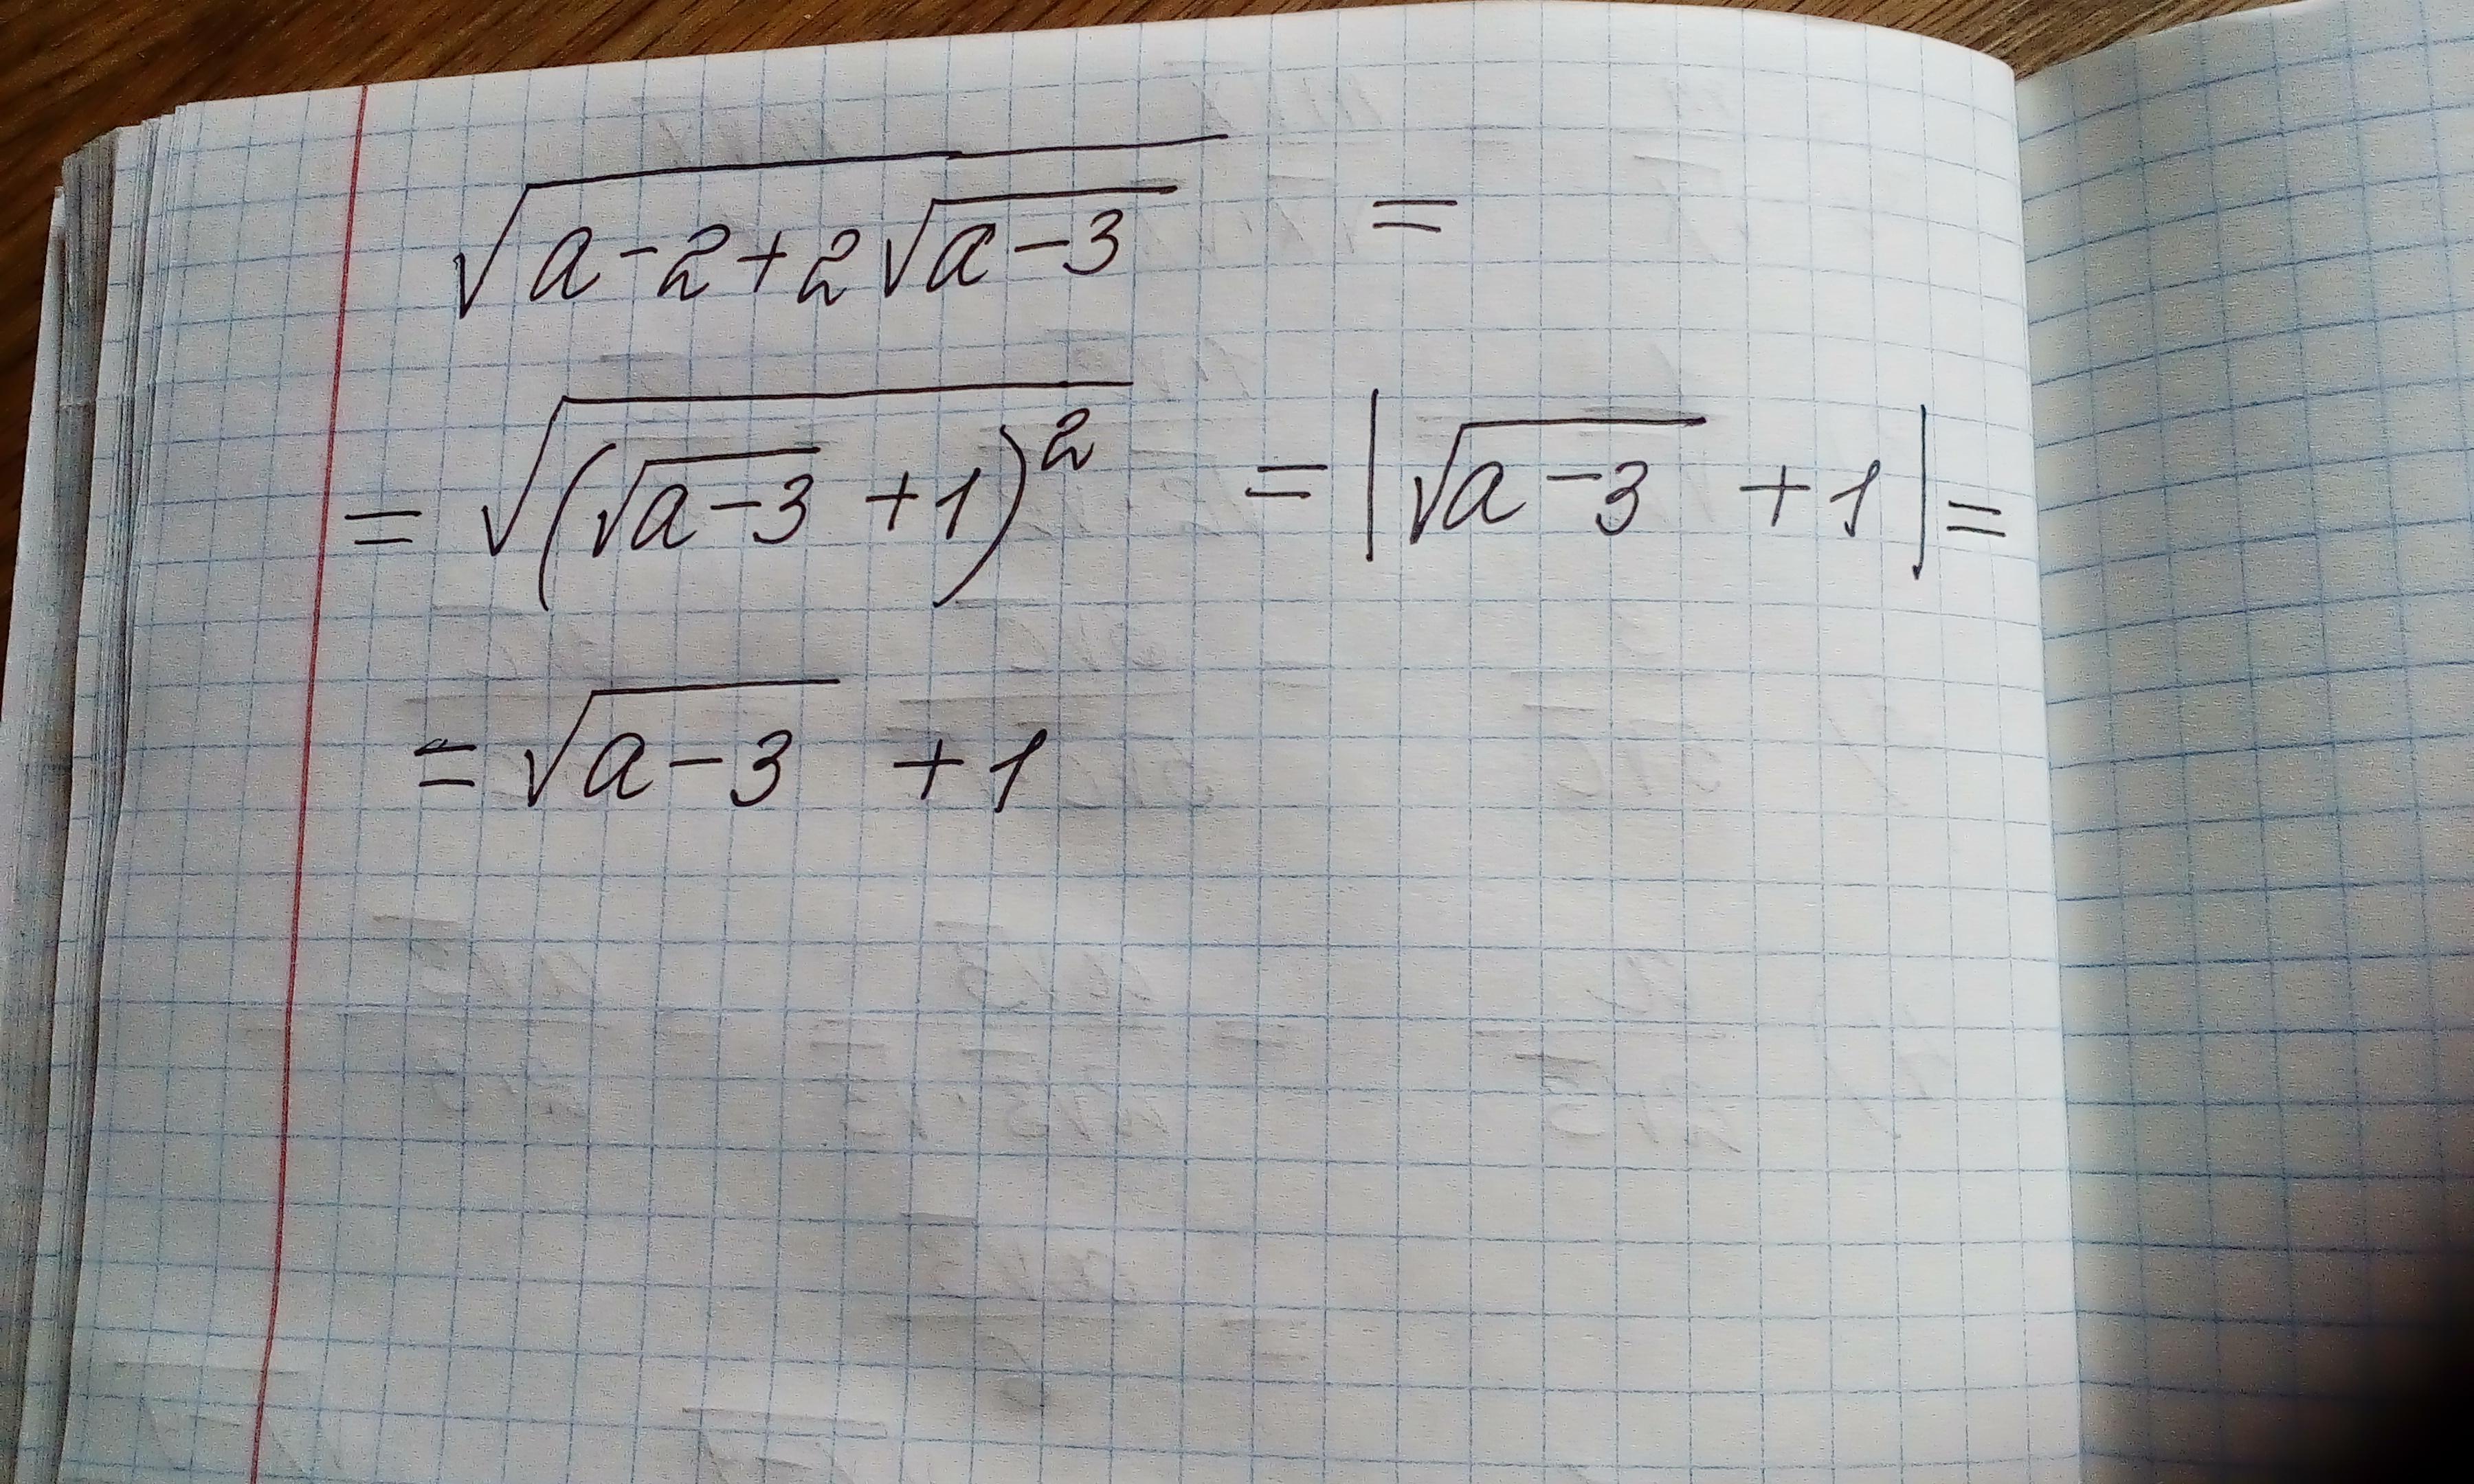 √(a-2+2√(a-3)) =
= √((√(a-3) +1)²) = |√(a-3) +1| =
= √(a-3) +1